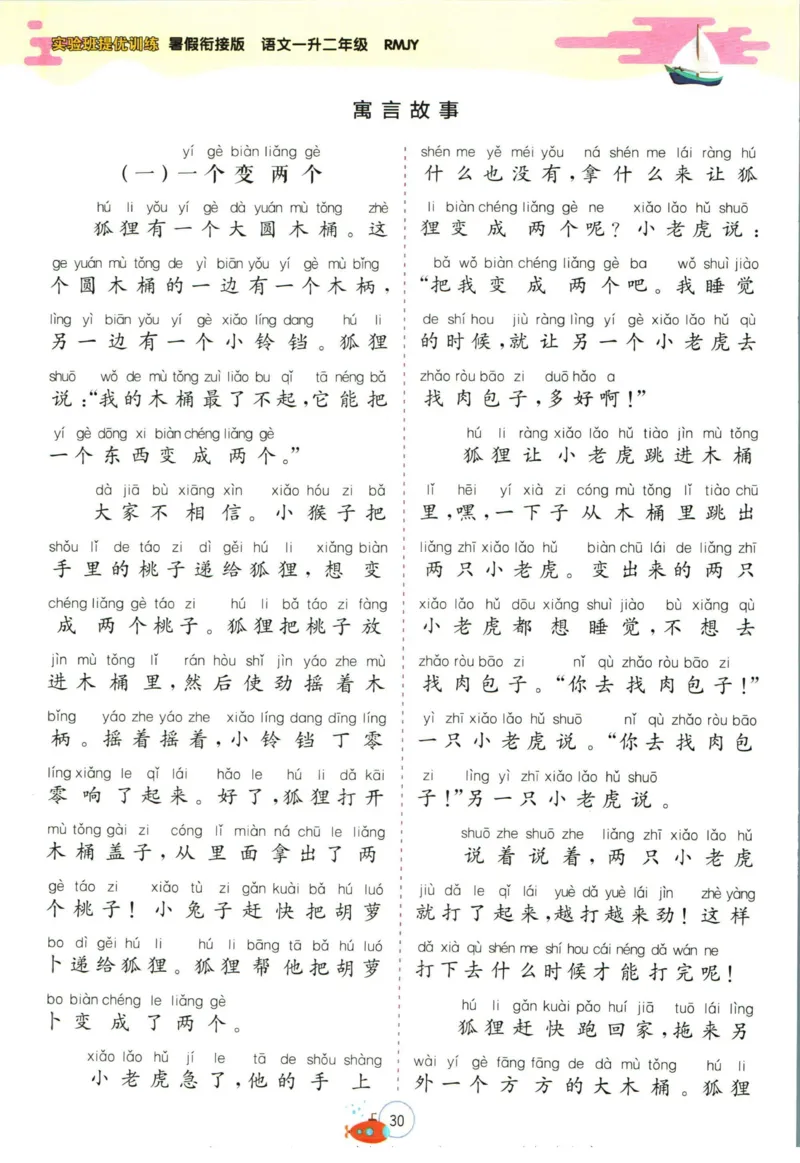 实验班提优训练 暑假衔接版 语文一升二年级 RMJY
寓言故事
yí gè biàn liǎng gè
(一)一个变两个
hú li yǒu yí gè dà yuán mù tǒng zhè
狐狸有一个大圆木桶。这
ge yuán mù tǒng de yì biān yǒu yí gè mù bǐng
个圆木桶的一边有一个木柄,
lìng yì biān yǒu yí gè xiǎo líng dang hú li
另一边有一个小铃铛。狐狸
shuō wǒ de mù tǒng zuì liǎo bu qǐ tā néng bǎ
说:“我的木桶最了不起,它能把
yí gè dōng xi biàn chéng liǎng gè
一个东西变成两个。”
dà jiā bù xiāng xìn xiǎo hóu zi bǎ
大家不相信。小猴子把
shǒu lǐ de táo zi dì gěi hú li xiǎng biàn
手里的桃子递给狐狸,想变
chéng liǎng gè táo zi hú li bǎ táo zi fàng
成两个桃子。狐狸把桃子放
jìn mù tǒng lǐ rán hòu shǐ jìn yáo zhe mù
进木桶里,然后使劲摇着木
bǐng yáo zhe yáo zhe xiǎo líng dang dīng líng
柄。摇着摇着,小铃铛丁零
líng xiǎng le qǐ lái hǎo le hú li dǎ kāi
零响了起来。好了,狐狸打开
mù tǒng gài zi cóng lǐ miàn ná chū le liǎng
木桶盖子,从里面拿出了两
gè táo zi xiǎo tù zi gǎn kuài bǎ hú luó
个桃子!小兔子赶快把胡萝
bo dì gěi hú li hú li bāng tā bǎ hú luó
卜递给狐狸。狐狸帮他把胡萝
bo biàn chéng le liǎng gè
卜变成了两个。
xiǎo lǎo hǔ jí le tā de shǒu shàng
小老虎急了,他的手上
shén me yě méi yǒu ná shén me lái ràng hú
什么也没有,拿什么来让狐
li biàn chéng liǎng gè ne xiǎo lǎo hǔ shuō
狸变成两个呢?小老虎说:
bǎ wǒ biàn chéng liǎng gè ba wǒ shuì jiào
“把我变成两个吧。我睡觉
de shí hou jiù ràng lìng yí gè xiǎo lǎo hǔ qù
的时候,就让另一个小老虎去
zhǎo ròu bāo zi duō hǎo a
找肉包子,多好啊!”
hú li ràng xiǎo lǎo hǔ tiào jìn mù tǒng
狐狸让小老虎跳进木桶
lǐ hēi yí xià zi cóng mù tǒng lǐ tiào chū
里,嘿,一下子从木桶里跳出
liǎng zhī xiǎo lǎo hǔ biàn chū lái de liǎng zhī
两只小老虎。变出来的两只
xiǎo lǎo hǔ dōu xiǎng shuì jiào bù xiǎng qù
小老虎都想睡觉,不想去
zhǎo ròu bāo zi nǐ qù zhǎo ròu bāo zi
找肉包子。“你去找肉包子!”
yì zhī xiǎo lǎo hǔ shuō nǐ qù zhǎo ròu bāo
一只小老虎说。“你去找肉包
zi lìng yì zhī xiǎo lǎo hǔ shuō
子!”另一只小老虎说。
shuō zhe shuō zhe liǎng zhī xiǎo lǎo hǔ
说着说着,两只小老虎
jiù dǎ le qǐ lái yuè dǎ yuè lái jìn zhè yàng
就打了起来,越打越来劲!这样
dǎ xià qù shén me shí hou cái néng dǎ wán ne
打下去什么时候才能打完呢!
hú li gǎn kuài pǎo huí jiā tuō lái lìng
狐狸赶快跑回家,拖来另
wài yí gè fāng fāng de dà mù tǒng hú li
外一个方方的大木桶。狐狸
30